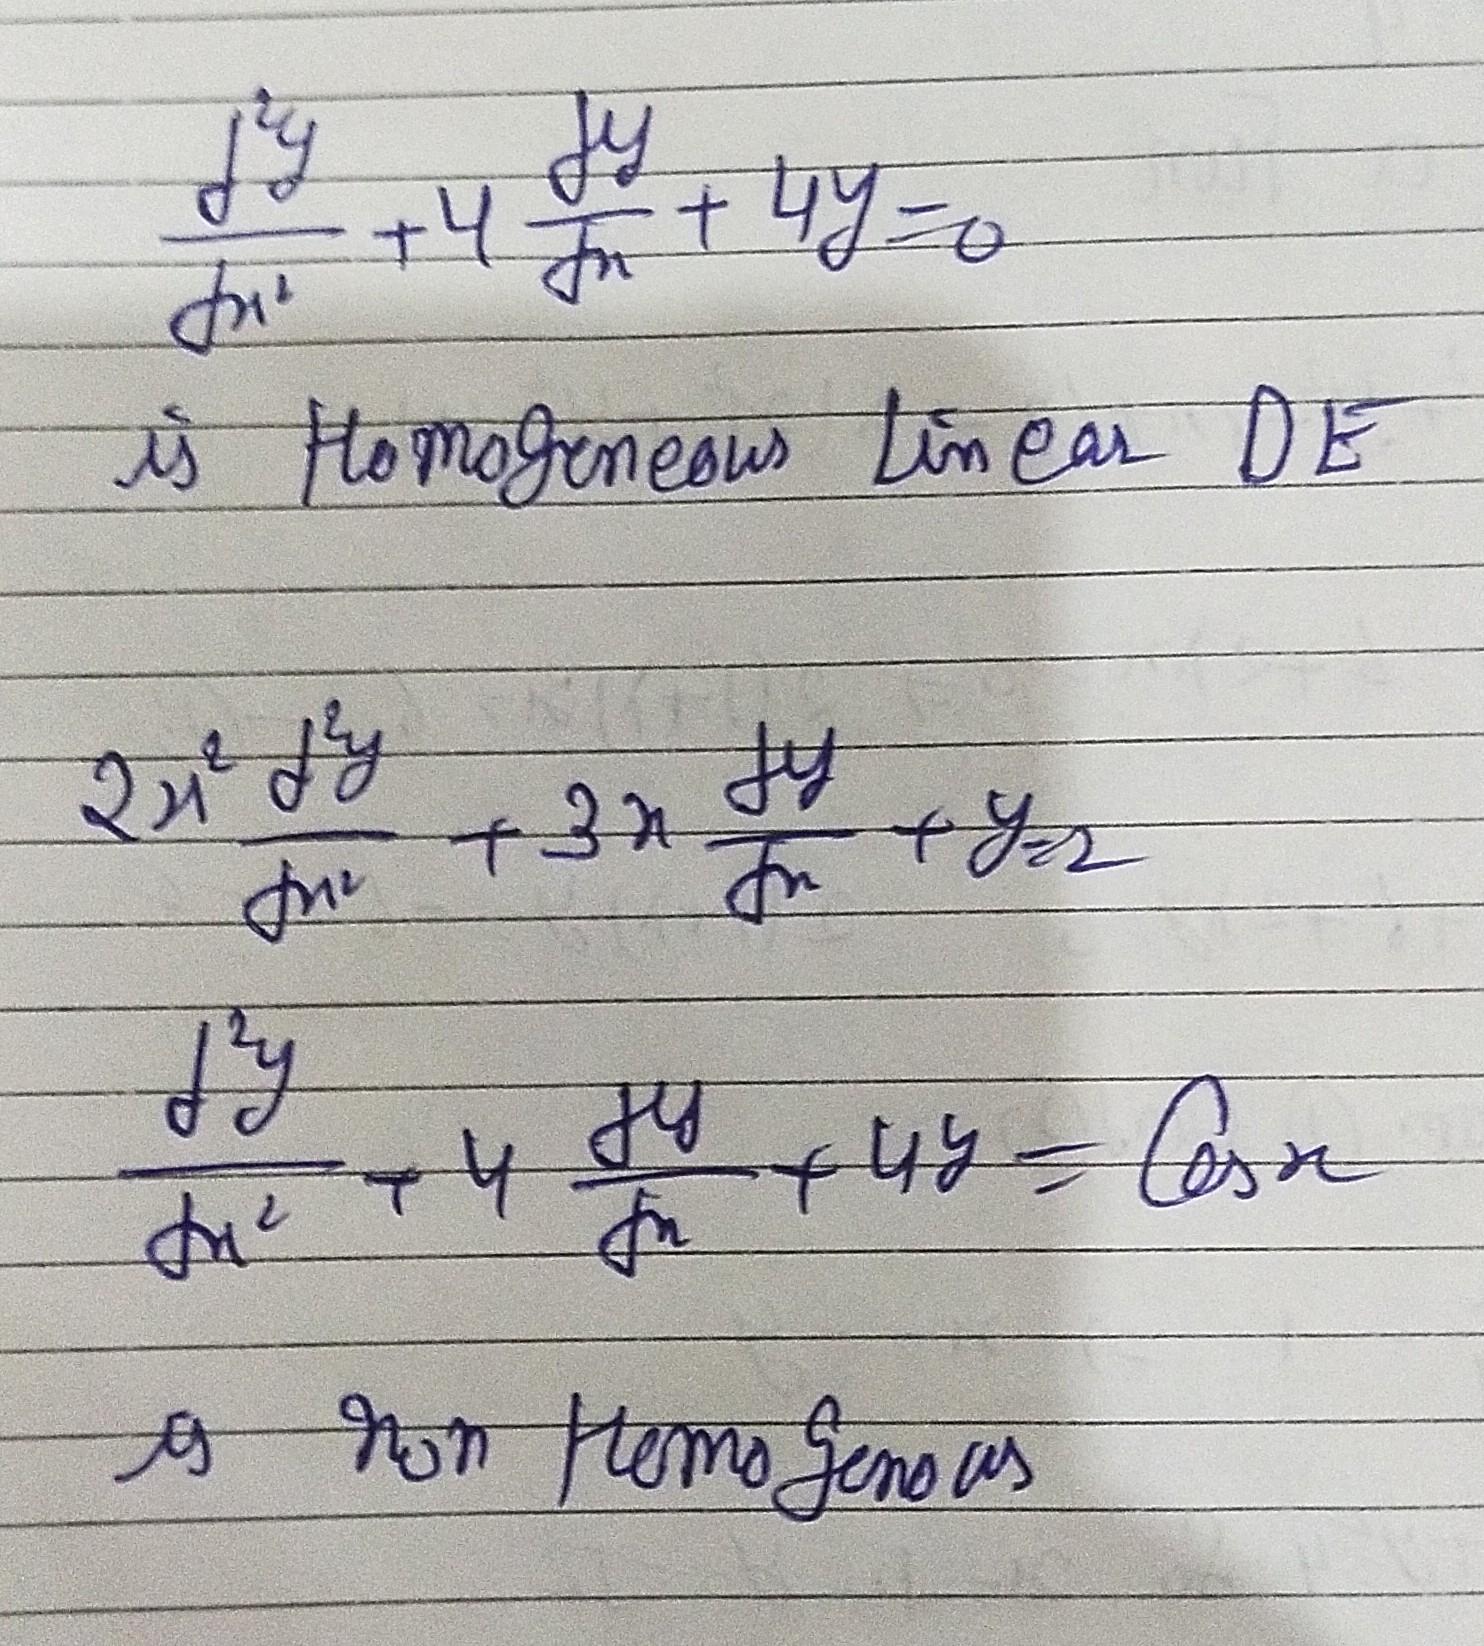 d²y/dx² + 4 dy/dx + 4y = 0
is Homogeneous Linear DE
2x² d²y/dx² + 3x dy/dx + y = 2
d²y/dx² + 4 dy/dx + 4y = Cos x
is non Homogenous